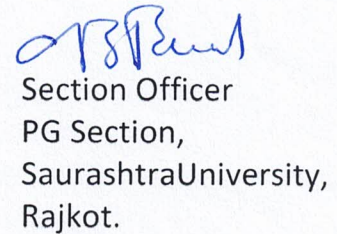 Section Officer
PG Section,
SaurashtraUniversity,
Rajkot.